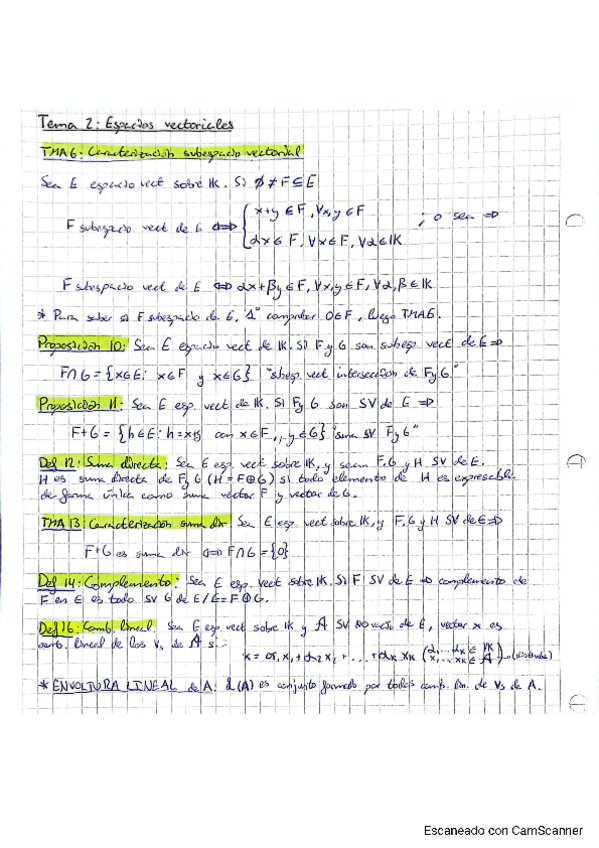 Tema 2: Espacios vectoriales
TMA 6: Caracterización subespacio vectorial
Sea E espacio vect sobre IK. Si ∅ ≠ F ⊆ E
F subespacio vect de E ⇔ { x+y ∈ F, ∀x,y ∈ F ; o sea ⇒
αx ∈ F, ∀x ∈ F, ∀α ∈ IK
F subespacio vect de E ⇔ αx+βy ∈ F, ∀x,y ∈ F, ∀α,β ∈ IK
* Para saber si F subespacio de E, 1º comprobar 0∈F, luego TMA6.
Proposición 10: Sea E espacio vect de IK. Si F y G son subesp. vect de E ⇒
F∩G = {x∈E: x∈F y x∈G} "subesp. vect intersección de F y G"
Proposición 11: Sea E esp. vect de IK. Si F y G son SV de E ⇒
F+G = {h∈E: h=x+y con x∈F, y∈G} "suma SV F y G"
Def 12: Suma directa: Sea E esp. vect sobre IK, y sean F, G y H SV de E.
H es suma directa de F y G (H = F⊕G) si todo elemento de H es expresable
de forma única como suma vector F y vector de G.
TMA 13: Caracterización suma dir Sea E esp. vect sobre IK, y F, G y H SV de E ⇒
F+G es suma dir ⇔ F∩G = {0}
Def 14: Complemento: Sea E esp. vect sobre IK. Si F SV de E ⇒ complemento de
F en E es todo SV G de E / E = F⊕G.
Def 16: Comb. lineal: Sea E esp vect sobre IK y A SV no vacío de E, vector x es
comb. lineal de los vs de A si:
x = α₁x₁ + α₂x₂ + ... + αₖxₖ (α₁...αₖ ∈ IK
x₁,...xₖ ∈ A)
* ENVOLTURA LINEAL de A: L(A) es conjunto formado por todas comb. lin. de vs de A.
Escaneado con CamScanner